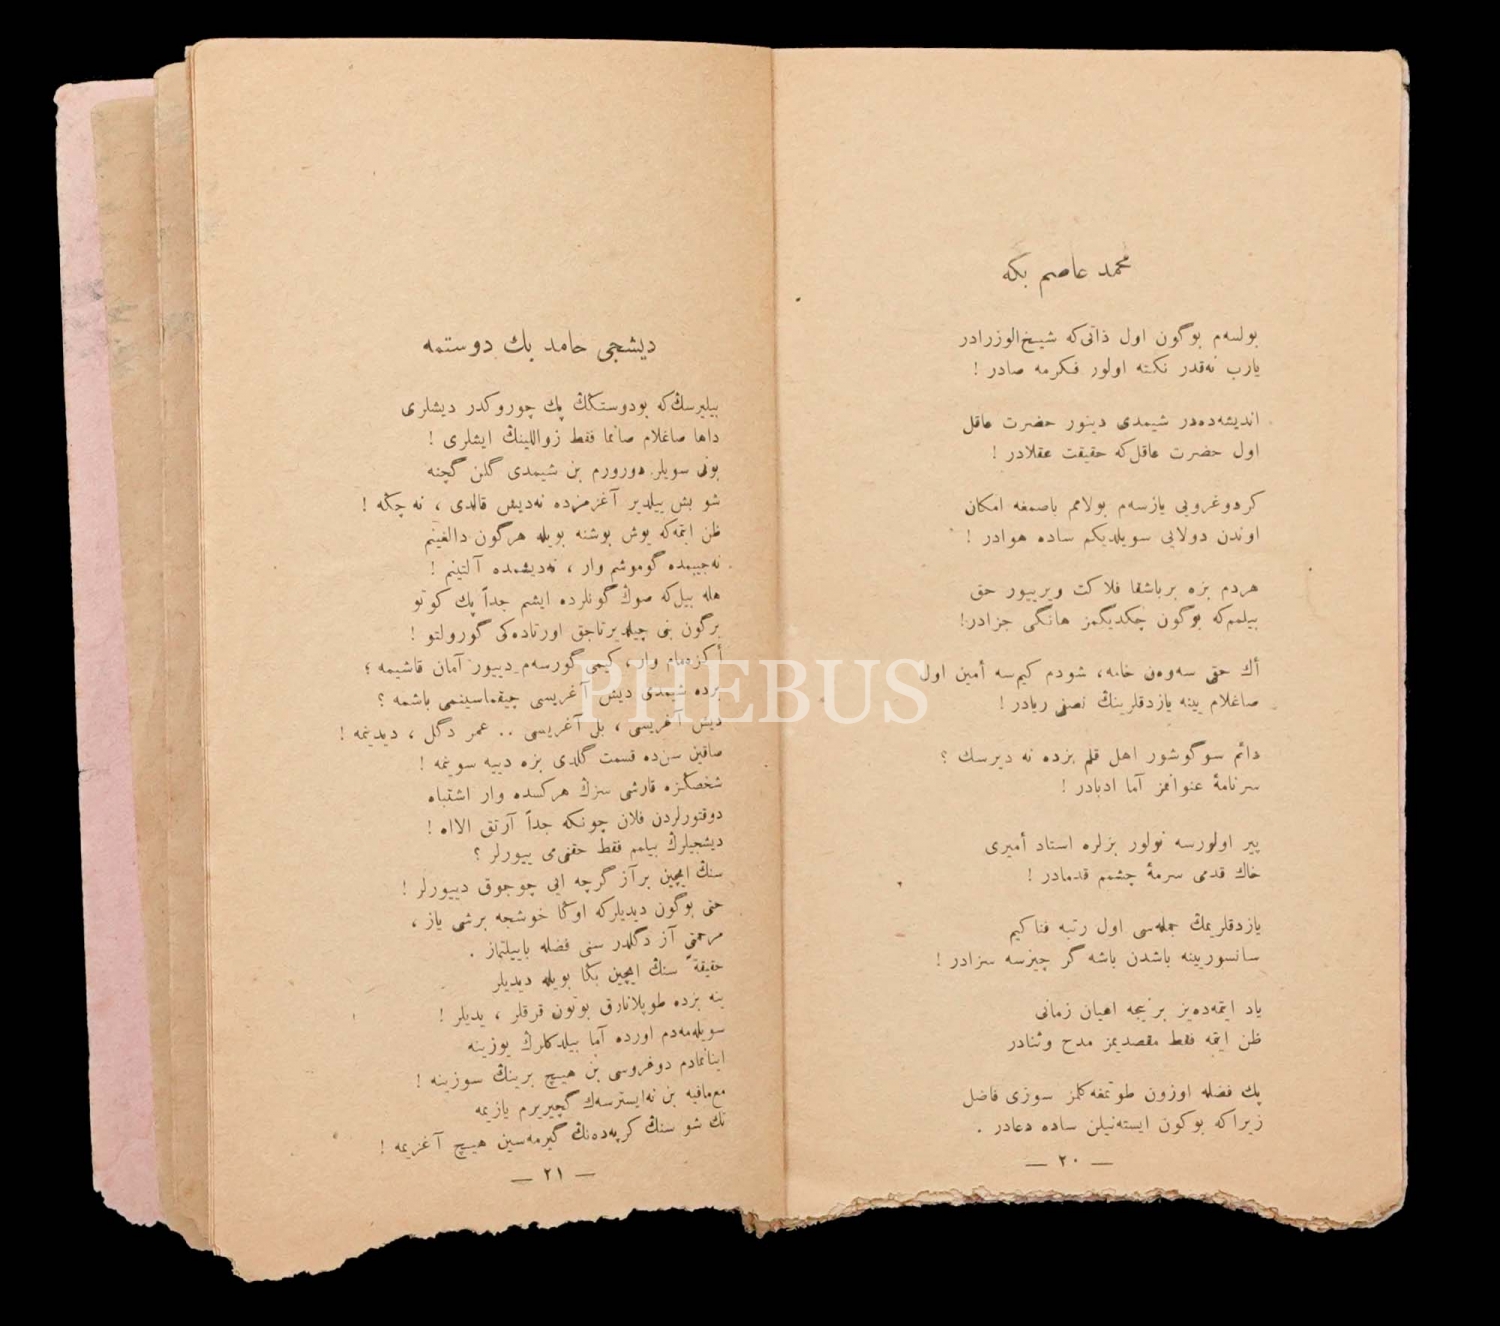 محمد عاصم بكه
بولسه‌م بوگون اول ذاتی‌كه شیخ‌الوزرادر
یارب نه‌قدر نكته اولور فكرمه صادر !
اندیشه‌ده‌در شیمدی دینور حضرت عاقل
اول حضرت عاقل‌كه حقیقت عقلادر !
كر دوغرویی یازسه‌م بولامم باصمغه امكان
اوندن دولایی سویلدیكم ساده هوادر !
هردم بزه برباشقا فلاكت ویرییور حق
بیلمم‌كه بوگون چكدیگمز هانگی جزادر!
اڭ حق سه‌وه‌ن خامه، شودم كیم‌سه أمین اول
صاغلام یینه یازدقلرینڭ نصفی ریادر !
دائم سوگوشور اهل قلم بزده نه دیرسك ؟
سرنامهٔ عنوانمز آما ادبادر !
پیر اولورسه نولور بزلره استاد أمیری
خاك قدمی سرمهٔ چشمم قدمادر !
یازدقلریمڭ جمله‌سی اول رتبه فنا كیم
سانسوریینه باشدن باشه گر چیزسه سزادر !
یاد ایتمه‌ده‌یز بر نیجه اعیان زمانی
ظن ایتمه فقط مقصدیمز مدح وثنادر
پك فضله اوزون طوتمغه‌كلمز سوزی فاضل
زیرا‌كه بوكون ایسته‌نیلن ساده دعادر .
— ٢٠ —
دیشجی حامد بك دوستمه
بیلیرسڭ‌كه بودوستكڭ پك چوروكدر دیشلری
داها صاغلام صانما فقط زواللینڭ ایشلری !
بونی سویلر دورورم بن شیمدی گلن گچنه
شو بش بیلدیر آغزمزده نه‌دیش قالدی ، نه چكه !
ظن ایتمه‌كه بوش بوشنه بویله هرگون دالغینم
نه‌جیبمده گوموشم وار ، نه‌دیشمده آلتینم !
هله بیل‌كه صوڭ گونلرده ایشم جداً پك كوتو
برگون بنی چیلدیرتاجق اورتاده‌كی گورولتو !
أگزه‌مام وار ، كیمی گورسه‌م دییور آمان قاشیمه ؛
برده شیمدی دیش آغریسی چیقماسینمی باشمه ؟
دیش آغریسی ، بل آغریسی .. عمر دگل ، دیدیمه !
صاقین سن‌ده قسمت گلدی بزه دییه سوینمه !
شخصكزه قارشی سزڭ هركسده وار اشتباه
دوقتورلردن فلان چونكه جداً آرتق الااه !
دیشجیلرڭ بیلمم فقط حقنی‌می ییورلر ؟
سنڭ ایچین برآز گرچه ایی چوجوق دییورلر !
حتی بوگون دیدیلركه اوكا خوشجه برشی یاز ،
مرحمتی آز دگلدر سنی فضله باییلتماز .
حقیقةً سنڭ ایچین بكا بویله دیدیلر
ینه بزده طوپلانارق بوتون قرقلر ، یدیلر !
سویله‌مه‌دم اورده آما بیلدكلرڭ یوزینه
اینانمادم دوغروسی بن هیچ برینڭ سوزینه !
مع‌مافیه بن نه‌ایسترسه‌ك گچیریرم یازیمه
تك شو سنڭ كرپه‌ده‌نڭ گیرمه‌سین هیچ آغزیمه !
— ٢١ —
PHEBUS